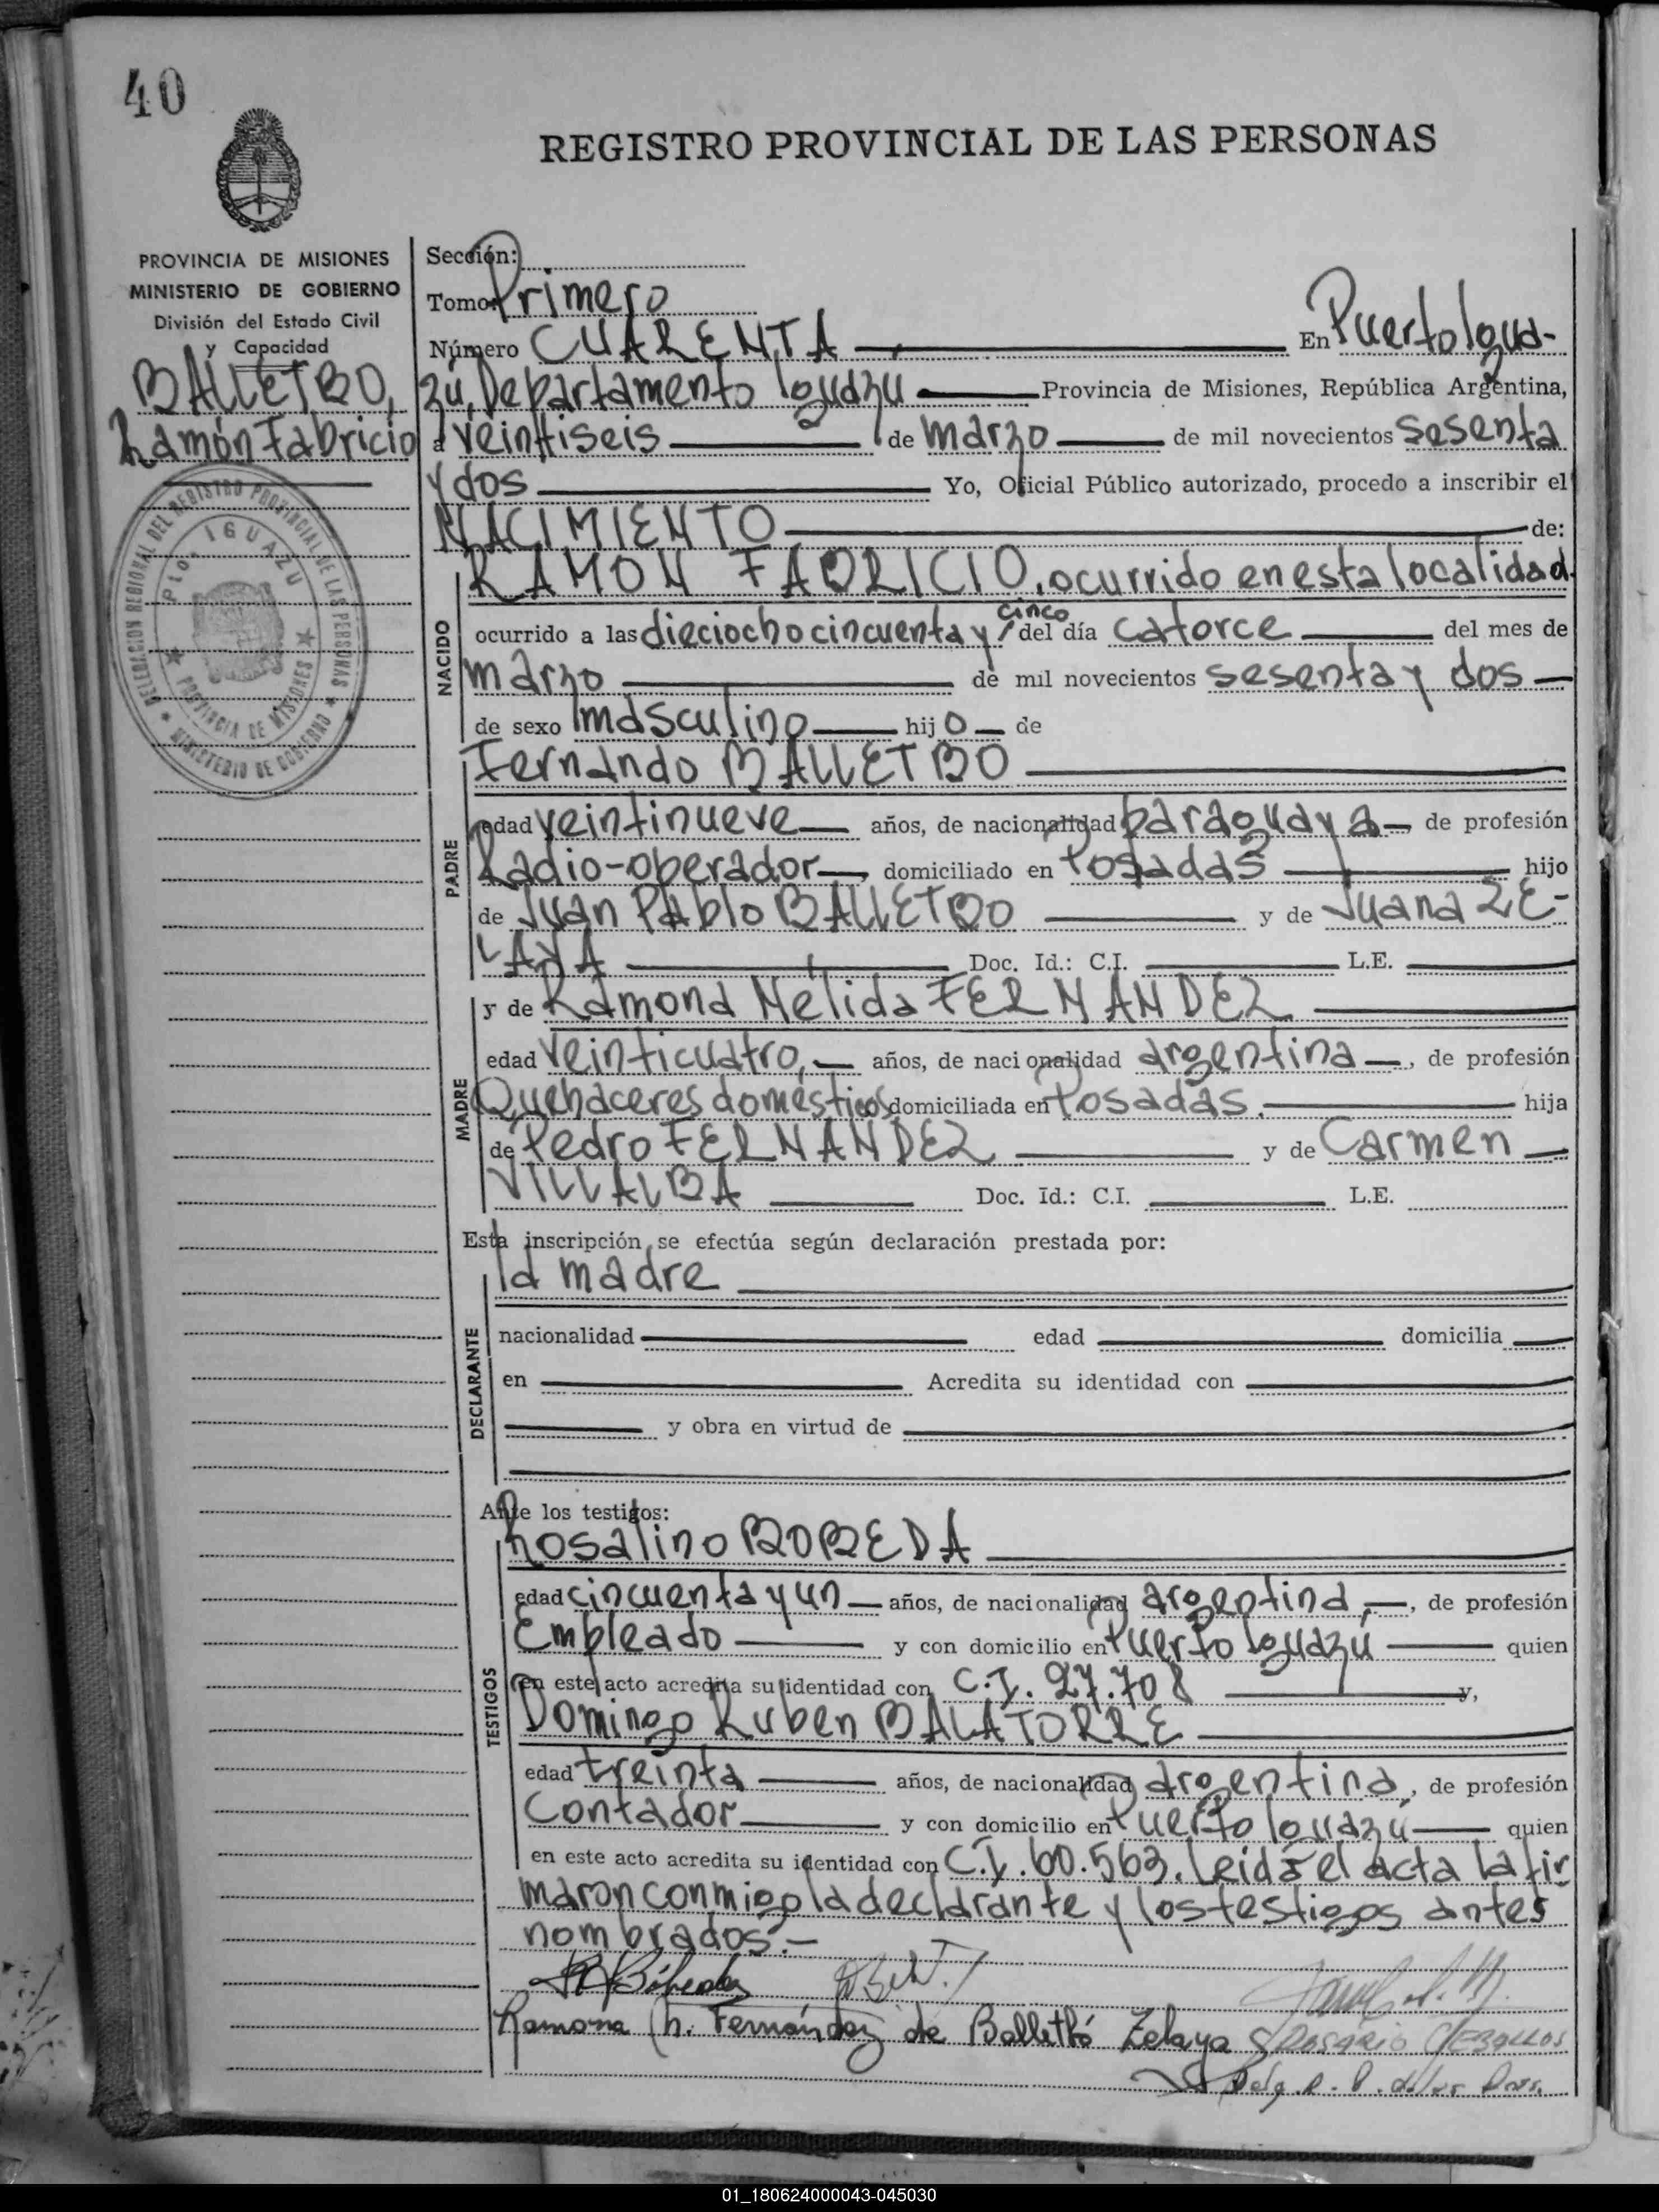 40
REGISTRO PROVINCIAL DE LAS PERSONAS
PROVINCIA DE MISIONES
MINISTERIO DE GOBIERNO
División del Estado Civil
y Capacidad
BALLETBO,
Ramón Fabricio
DELEGACION REGIONAL DEL REGISTRO PROVINCIAL DE LAS PERSONAS
MINISTERIO DE GOBIERNO
Pto. IGUAZU
PROVINCIA DE MISIONES
Sección:
Tomo: Primero
Número CUARENTA En Puerto Igua-
zú, Departamento Iguazu Provincia de Misiones, República Argentina,
a veintiseis de marzo de mil novecientos sesenta
y dos Yo, Oficial Público autorizado, procedo a inscribir el
NACIMIENTO de:
NACIDO
RAMON FABRICIO, ocurrido en esta localidad
ocurrido a las dieciocho cincuenta y cinco del día catorce del mes de
marzo de mil novecientos sesenta y dos
de sexo masculino hijo de
PADRE
Fernando BALLETBO
edad veintinueve años, de nacionalidad paraguaya de profesión
Radio-operador domiciliado en Posadas hijo
de Juan Pablo BALLETBO y de Juana ZE-
LAYA Doc. Id.: C.I. L.E.
MADRE
y de Ramona Nelida FERNANDEZ
edad veinticuatro, años, de nacionalidad argentina, de profesión
Quehaceres domésticos domiciliada en Posadas. hija
de Pedro FERNANDEZ y de Carmen
VILLALBA Doc. Id.: C.I. L.E.
Esta inscripción se efectúa según declaración prestada por:
DECLARANTE
la madre
nacionalidad edad domicilia
en Acredita su identidad con
y obra en virtud de
Ante los testigos:
TESTIGOS
Rosalino BOBEDA
edad cincuenta y un años, de nacionalidad argentina, de profesión
Empleado y con domicilio en Puerto Iguazú quien
en este acto acredita su identidad con C.I. 27.708 y,
Domingo Ruben BALATORRE
edad treinta años, de nacionalidad argentina, de profesión
Contador y con domicilio en Puerto Iguazú quien
en este acto acredita su identidad con C.I. 60.563. Leida el acta la fir
maron conmigo la declarante y los testigos antes
nombrados.-
Ramona N. Fernández de Balletbó Zelaya ROSARIO CEBALLOS
01_180624000043-045030